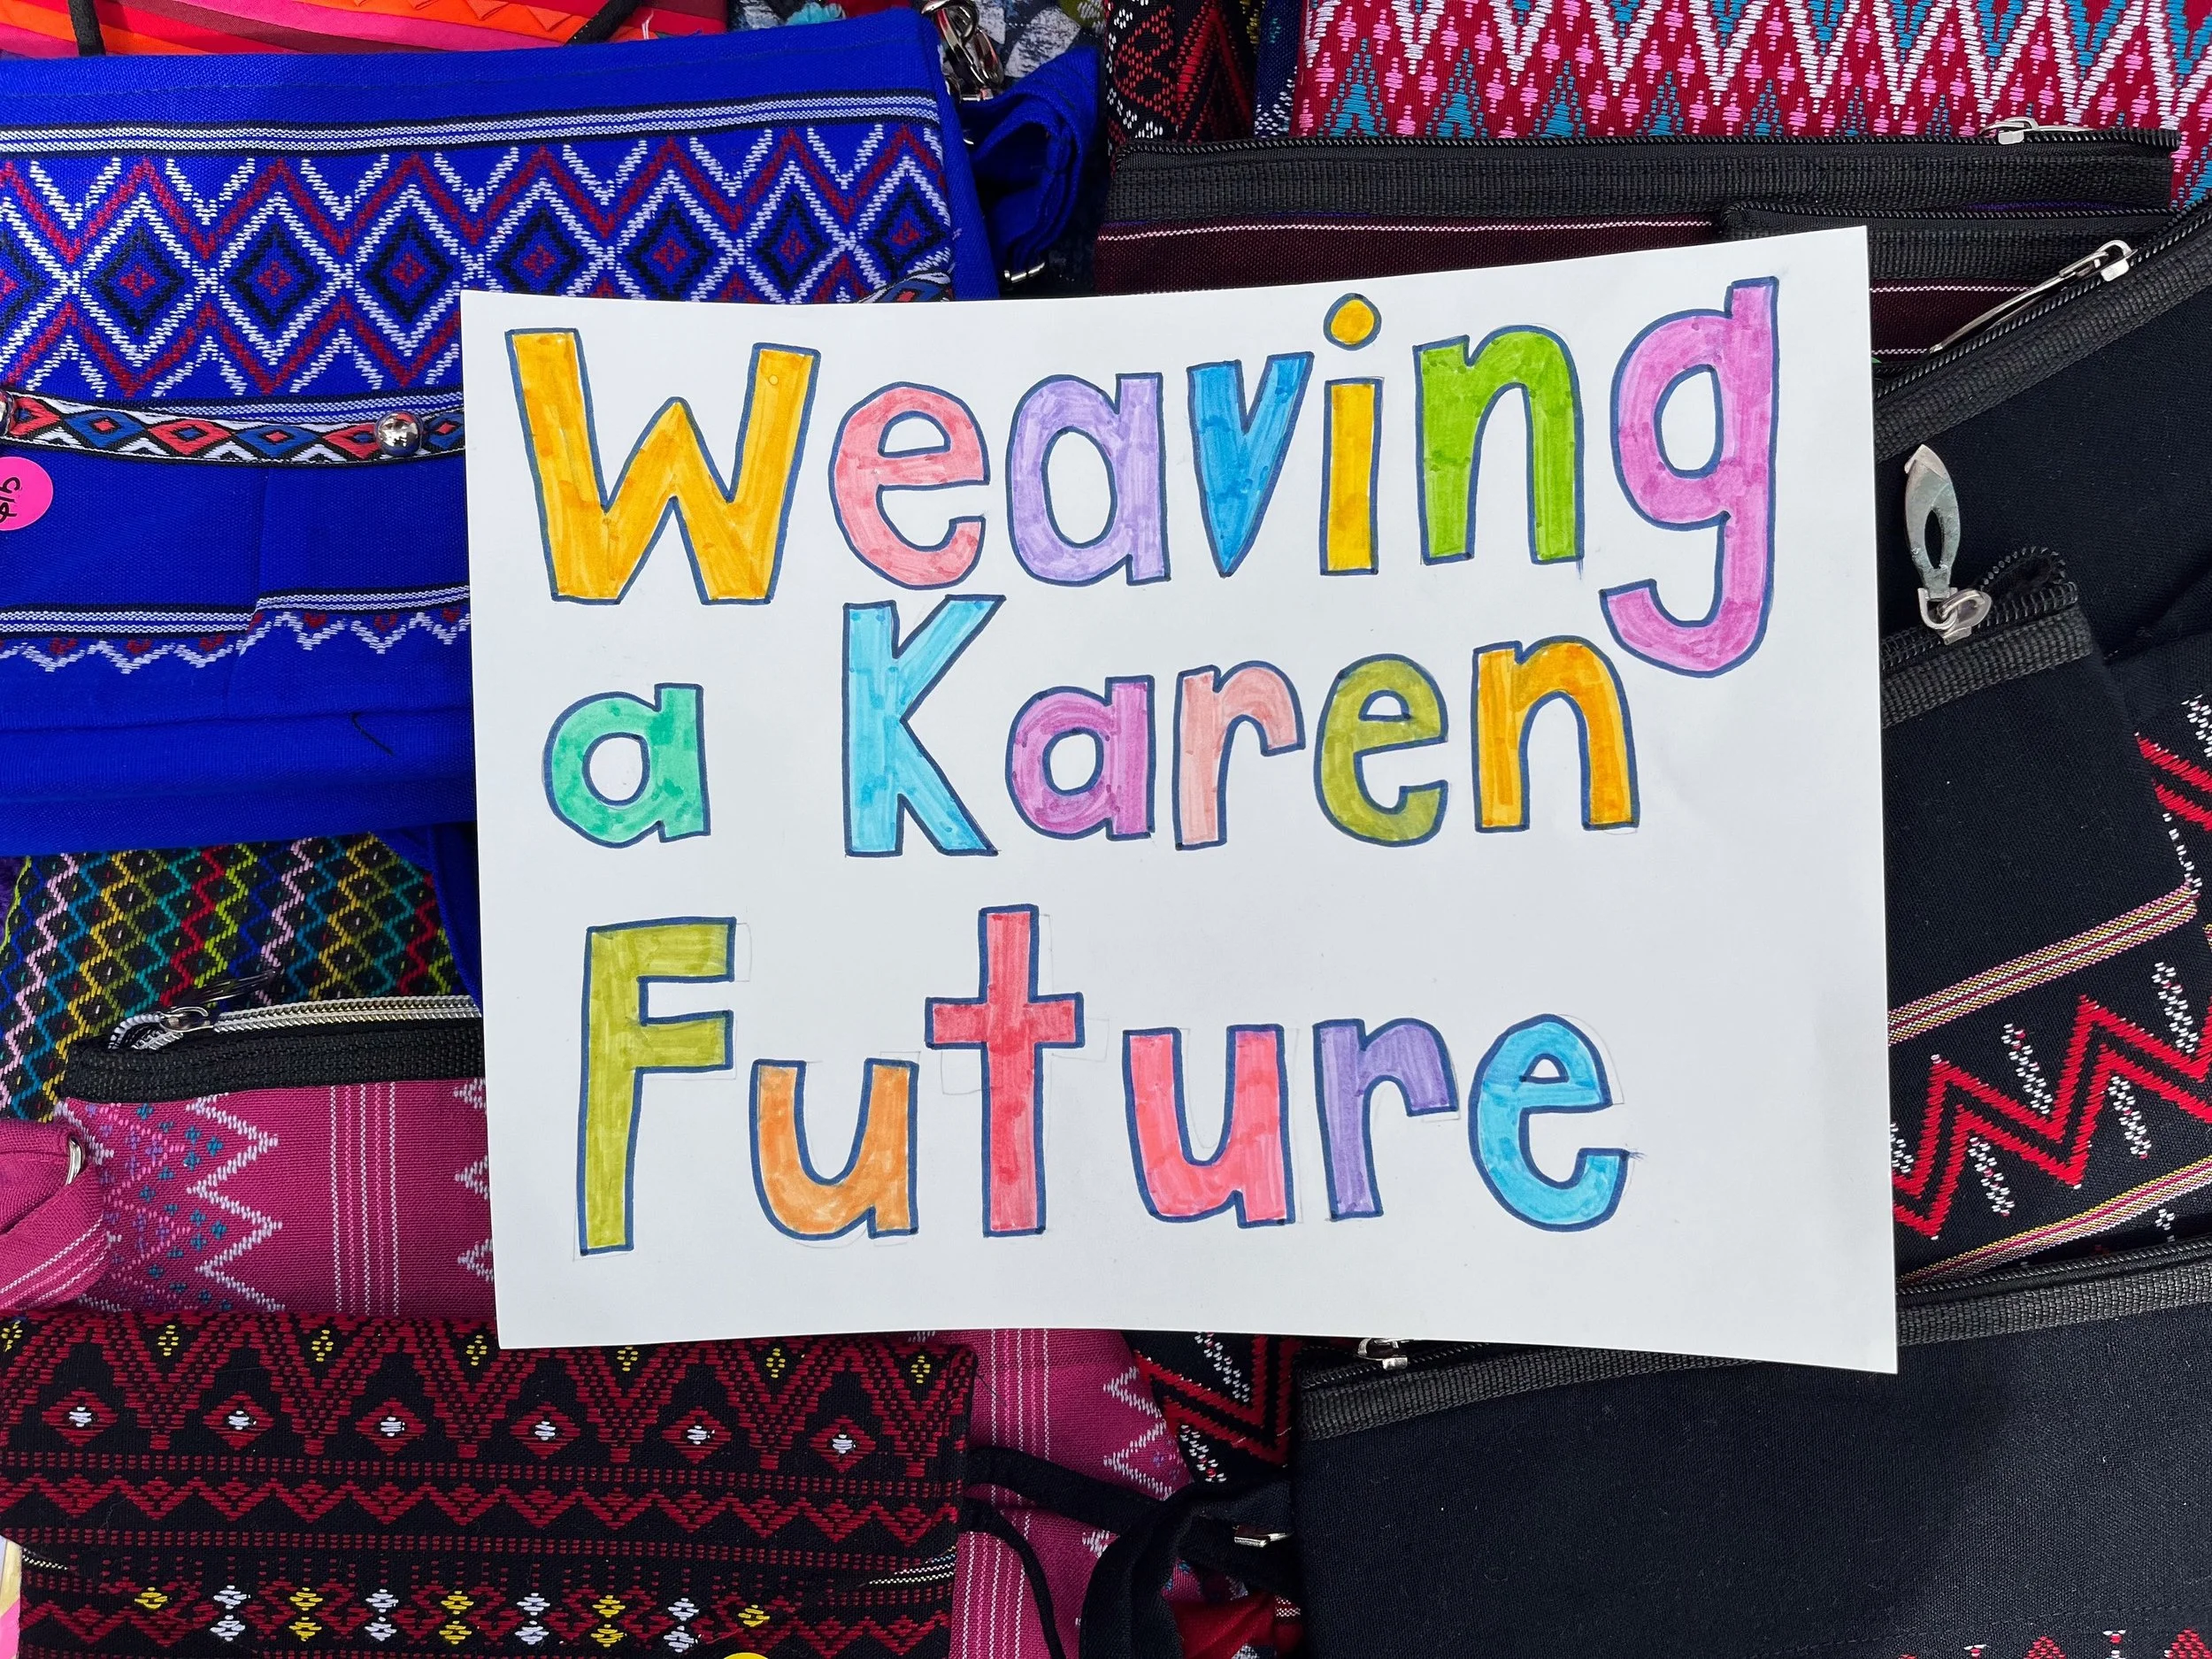 Weaving
a Karen
Future